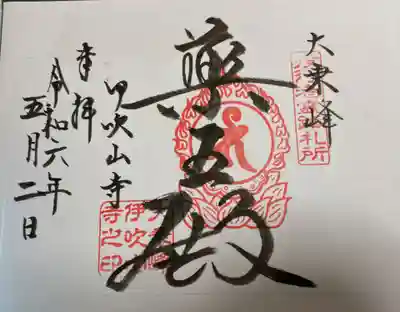 大乗峰
札所
薬王殿
大乗峰
伊吹山
寺之印
伊吹山寺
奉拝
令和六年
五月二日